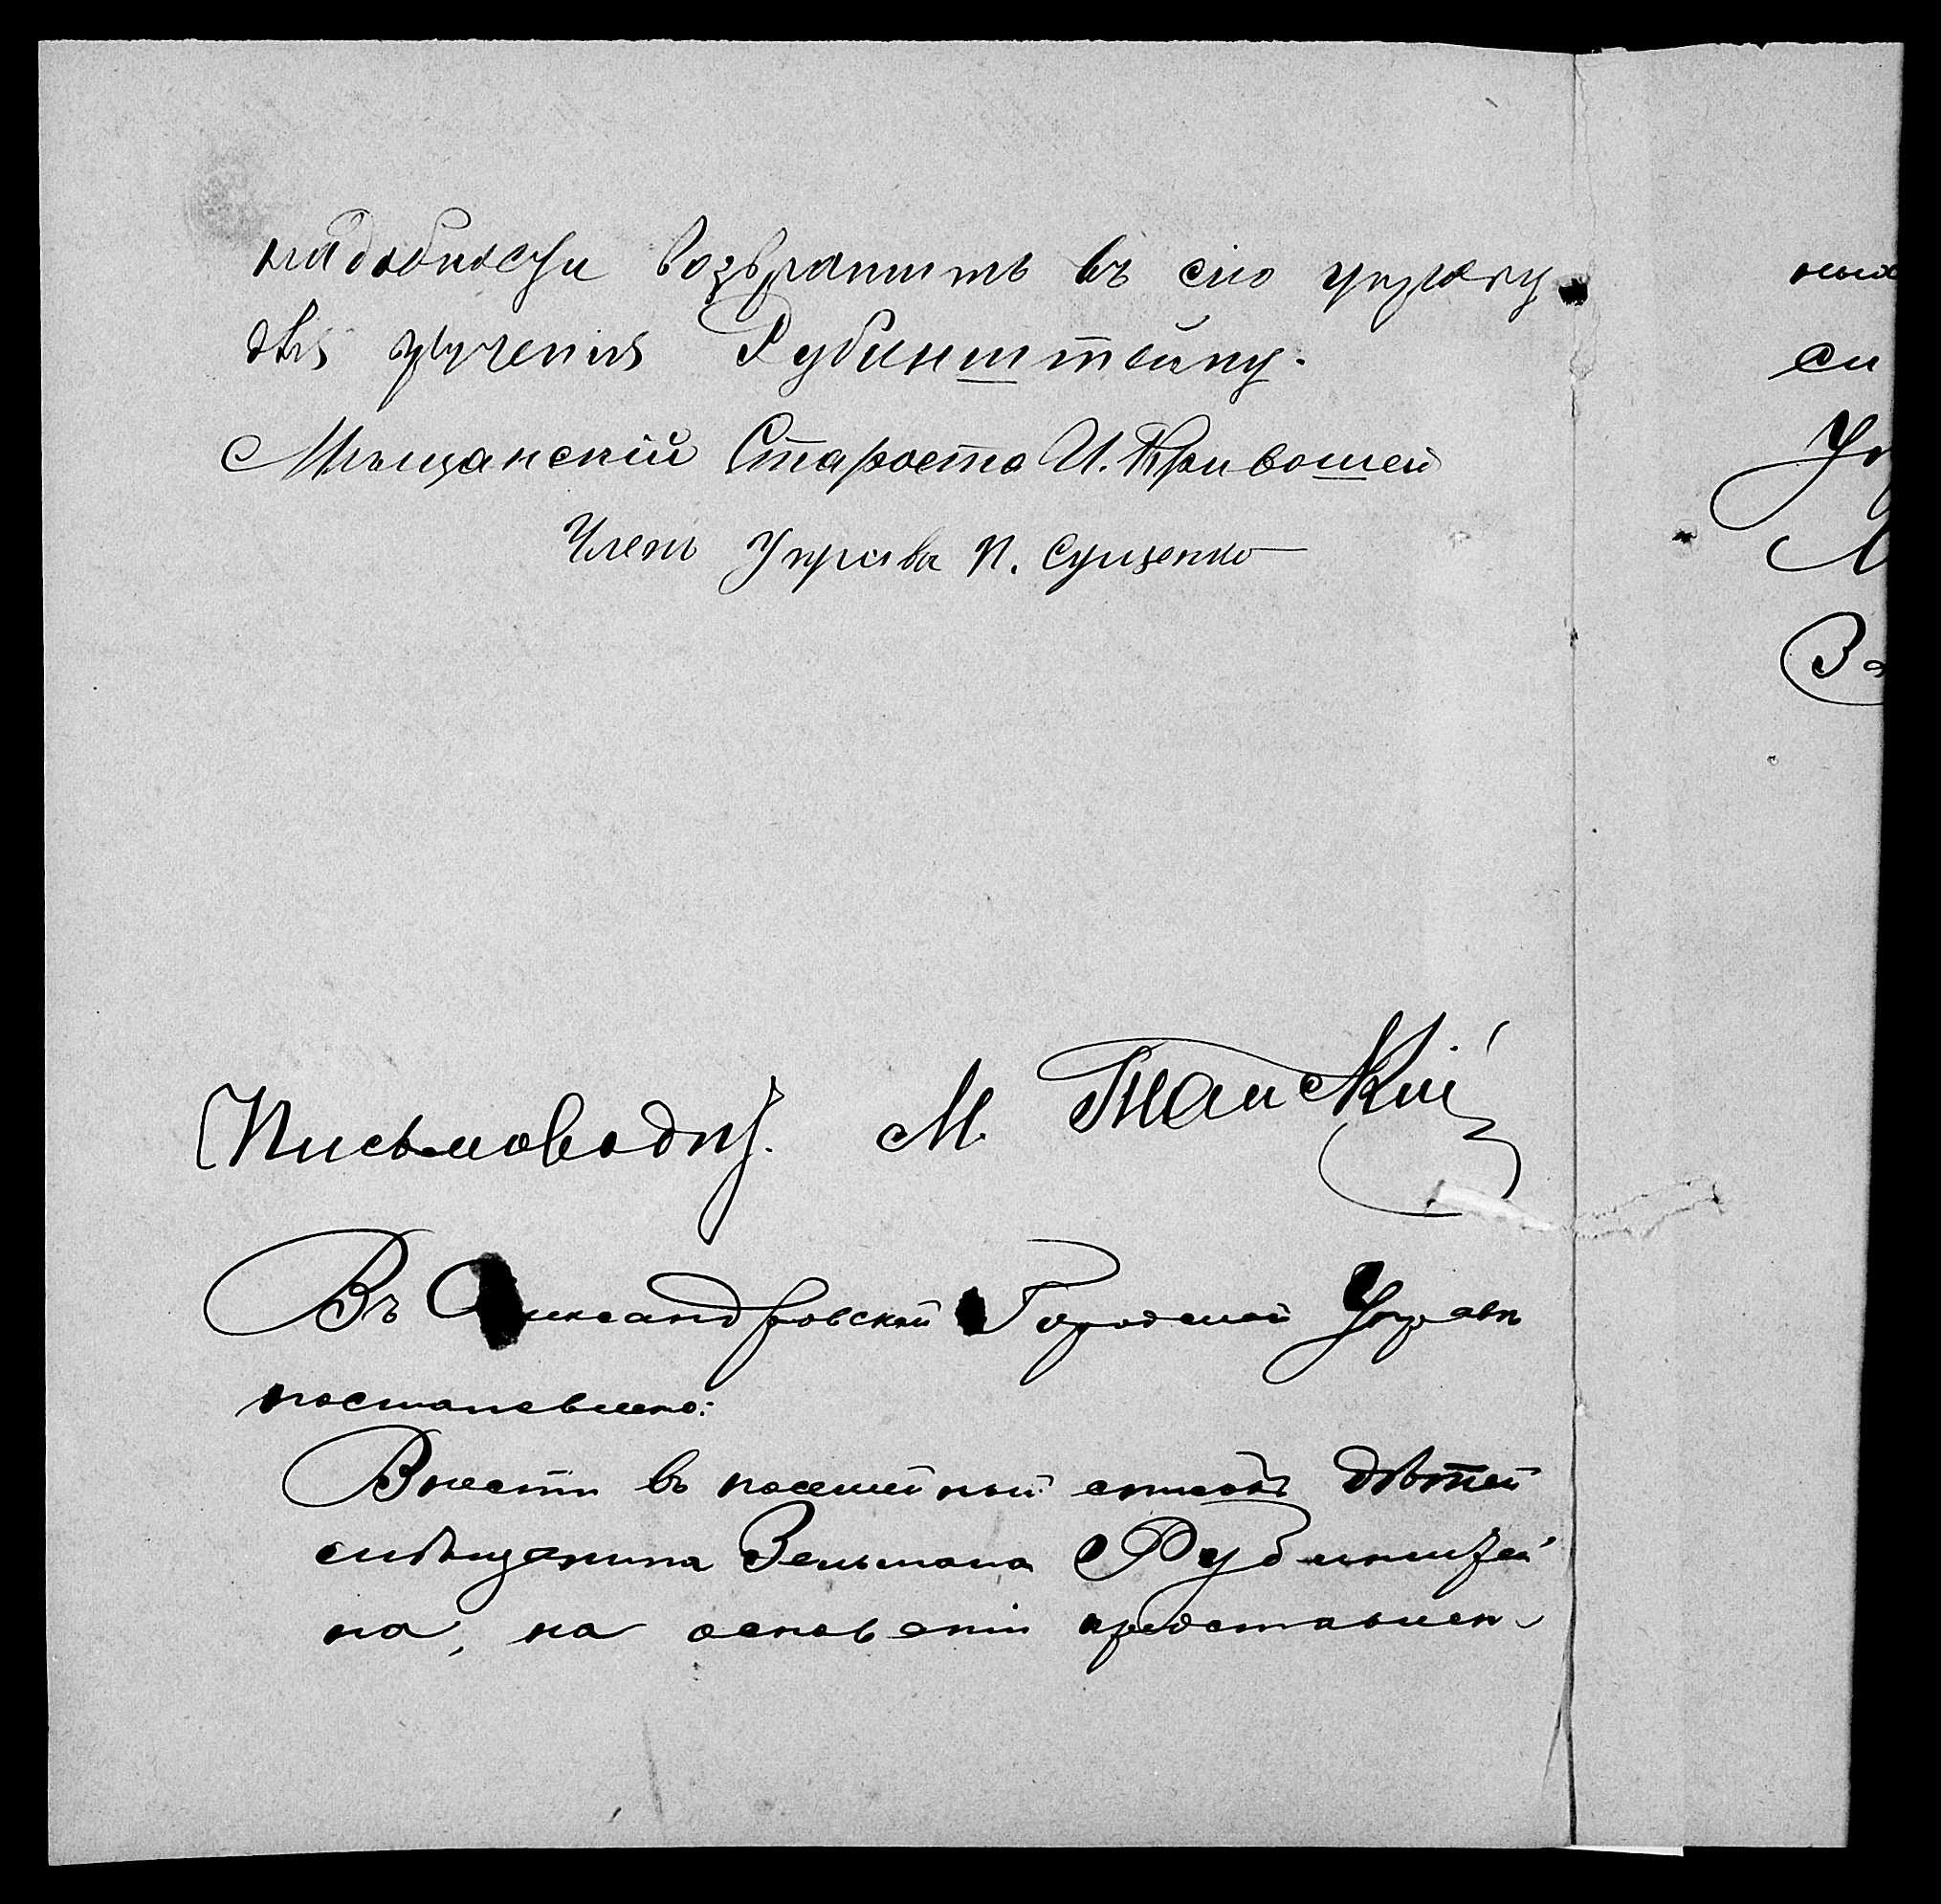 надобности возвратить въ сію управу
для врученія Рубинштейну.
Мѣщанскій Староста И. Кривошей
Членъ Управы П. Сущенко
Письмоводит. М.
Въ Александровской Городской Управѣ
постановлено:
Внести въ посемейный списокъ дѣтей
мѣщанина Зельмана Рубинштей
на, на основаніи представлен-